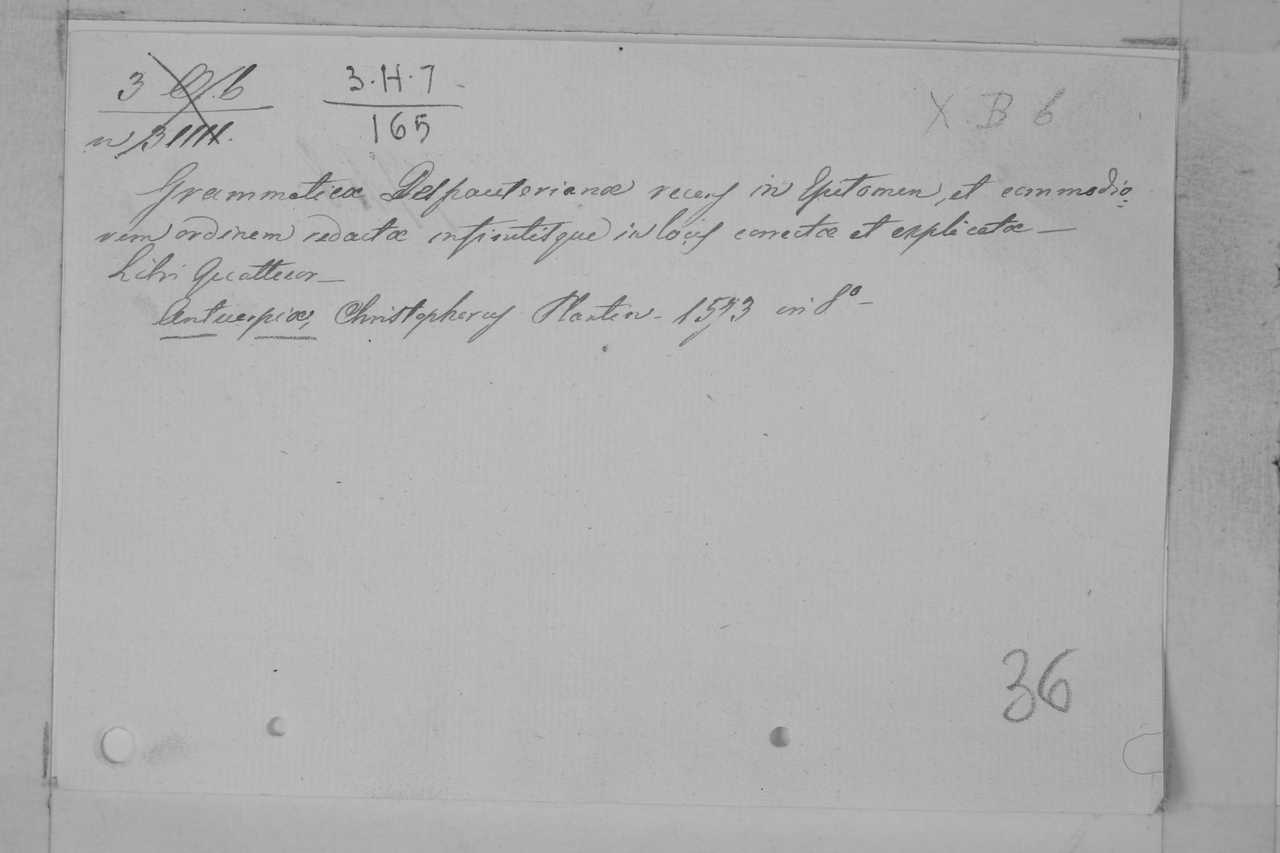 3
3·H·7
165
X. B 6
Grammaticæ Despauterianæ recens in Epitomen, et commodio
rem ordinem redactæ infinitisque in locis correctæ et explicatæ —
Libri Quattuor —
Antuerpiæ, Christophorus Plantin - in 8º -
36